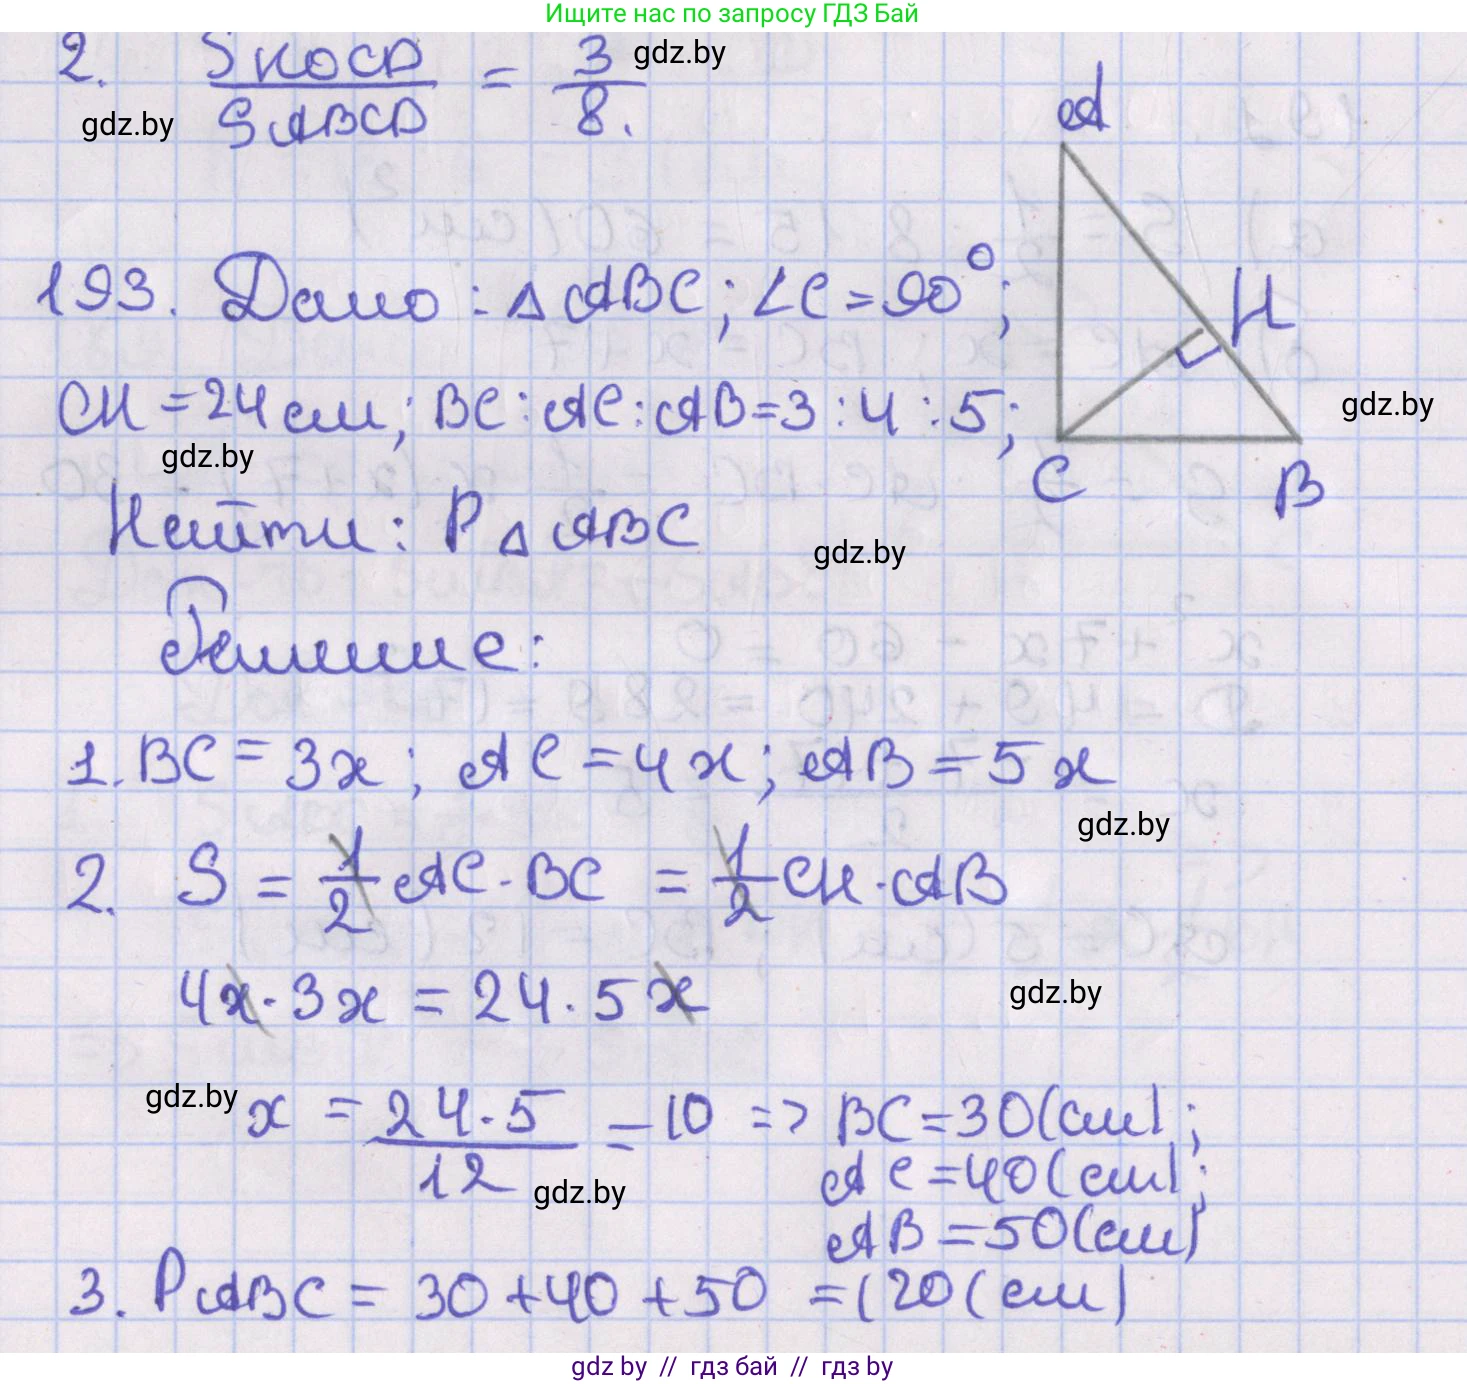 Ищите нас по запросу ГДЗ Бай
2. SKOCD / SABCD = 3 / 8.
gdz.by
gdz.by
A
193. Дано: △ ABC; ∠C = 90°;
H
CH = 24 см; BC : AC : AB = 3 : 4 : 5;
gdz.by
gdz.by
C B
Найти: P △ ABC
gdz.by
Решение:
1. BC = 3x; AC = 4x; AB = 5x
gdz.by
2. S = 1/2 AC · BC = 1/2 CH · AB
4x · 3x = 24 · 5x
gdz.by
gdz.by
x = 24 · 5 / 12 = 10 => BC = 30 (см);
AC = 40 (см);
gdz.by
AB = 50 (см)
3. PABC = 30 + 40 + 50 = 120 (см)
gdz by // гдз бай // гдз by